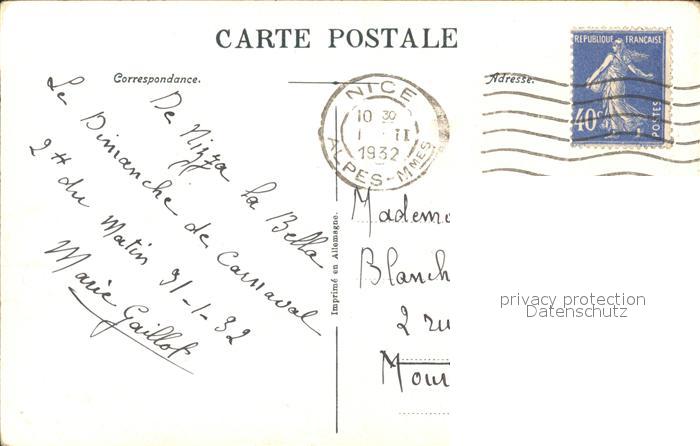 CARTE POSTALE
Correspondance.
Adresse.
REPUBLIQUE FRANÇAISE
40c
POSTES
NICE
10 30
1 II
1932
ALPES-MMES
De Nizza la Bella
Le Dimanche de Carnaval
2 H du Matin 31-1-32
Marie Gaillot
Imprimé en Allemagne.
Madem
Blanch
2 ru
Mou
privacy protection
Datenschutz